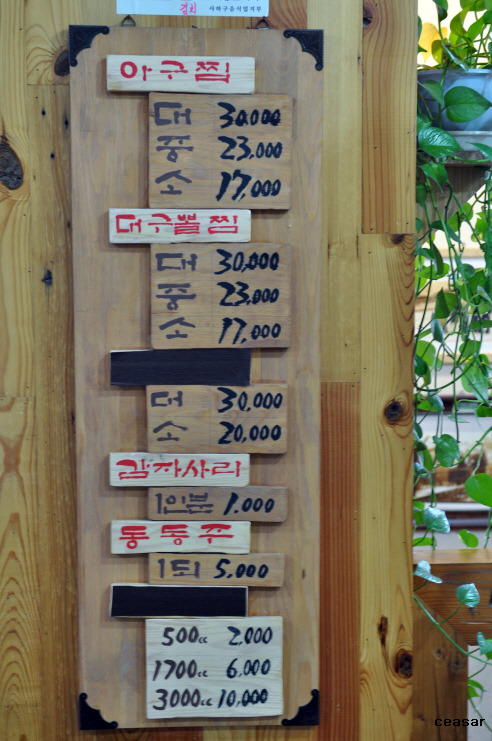 김치 사하구음식업지부
아구찜
대 30,000
중 23,000
소 17,000
대구뽈찜
대 30,000
중 23,000
소 17,000
대 30,000
소 20,000
감자사리
1인분 1,000
동동주
1되 5,000
500cc 2,000
1700cc 6,000
3000cc 10,000
ceasar